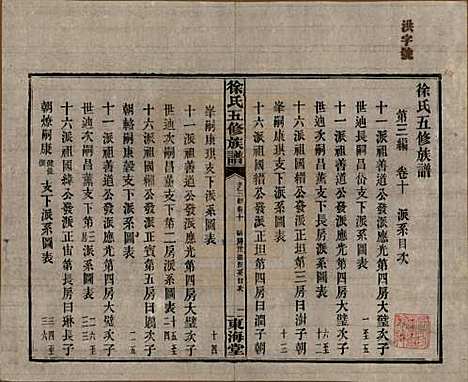 洪字號
徐氏五修族譜
第三編 卷十 派系目次
十一派祖善道公發派應光第四房大璧次子
世廸長嗣昌 支下派系圖表
一至五
十一派祖善道公發派應光第四房大璧次子
世廸次嗣昌薰支下第一房派系圖表
六至十二
十六派祖國縉公發派正坦第三房曰 子朝
十三
徐氏五修族譜
東海堂
峯嗣康琪支下派系圖表
十四
十一派祖善道公發派應光第四房大璧次子
世廸次嗣昌薰支下第二房派系圖表
十五至二四
十六派祖國縉公發派正賓第五房曰 次子
朝 嗣康 支下派系圖表
二五
十一派祖善道公發派應光第四房大璧次子
世廸次嗣昌薰支下第三派系圖表
二六至三三
十六派祖國 公發派正宙第一房曰琳長子
朝燎嗣康 支下派系圖表
三四至三六